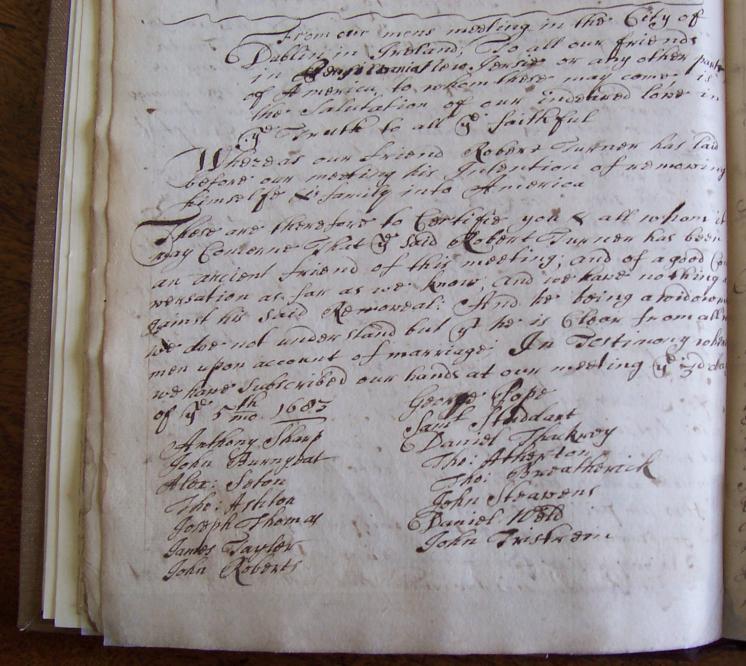 From our mens meeting in the City of
Dublin in Ireland; To all our friends
in Pensilvania New Jersie or any other parts
of America, to whom these may come is
the Salutation of our indeared love in
ye Truth to all ye faithful
Whereas our friend Robert Turner has laid
before our meeting his Intention of removing
himselfe & family into America
These are therefore to Certifie you & all whom it
may Concerne That ye said Robert Turner has been
an ancient friend of this meeting; and of a good Con
versation as far as we know; and we have nothing a
gainst his said Removeal: And he being a widower
we doe not understand but yt he is Clear from all wo
men upon account of marriage; In Testimony whereof
we have subscribed our hands at our meeting ye 3d day
of ye 5th mo. 1683
George Pope
Anthony Sharp
Saml Studdart
John Burnyeat
Daniel Thackrey
Alex: Seton
Tho: Atherton
Tho: Ashton
Tho: Breatherick
Joseph Thomas
John Steavens
James Taylor
Daniel Weld
John Roberts
John